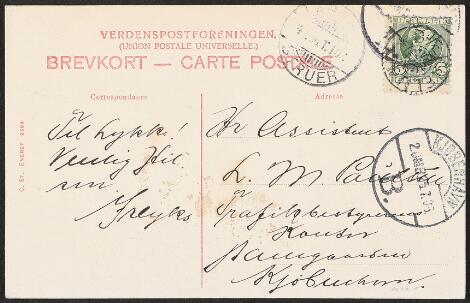 VERDENSPOSTFORENINGEN.
(UNION POSTALE UNIVERSELLE.)
BREVKORT — CARTE POSTALE
DANMARK
STRUER
Correspondance
Adresse
Til Lykke!
Venlig Hil
sen
Hr Assistent
L. M. Paulsen
Trafikbestyrerens
Kontor
Kjøbenhavn.
KJØBENHAVN
B.
C. ST. ENERET 2399